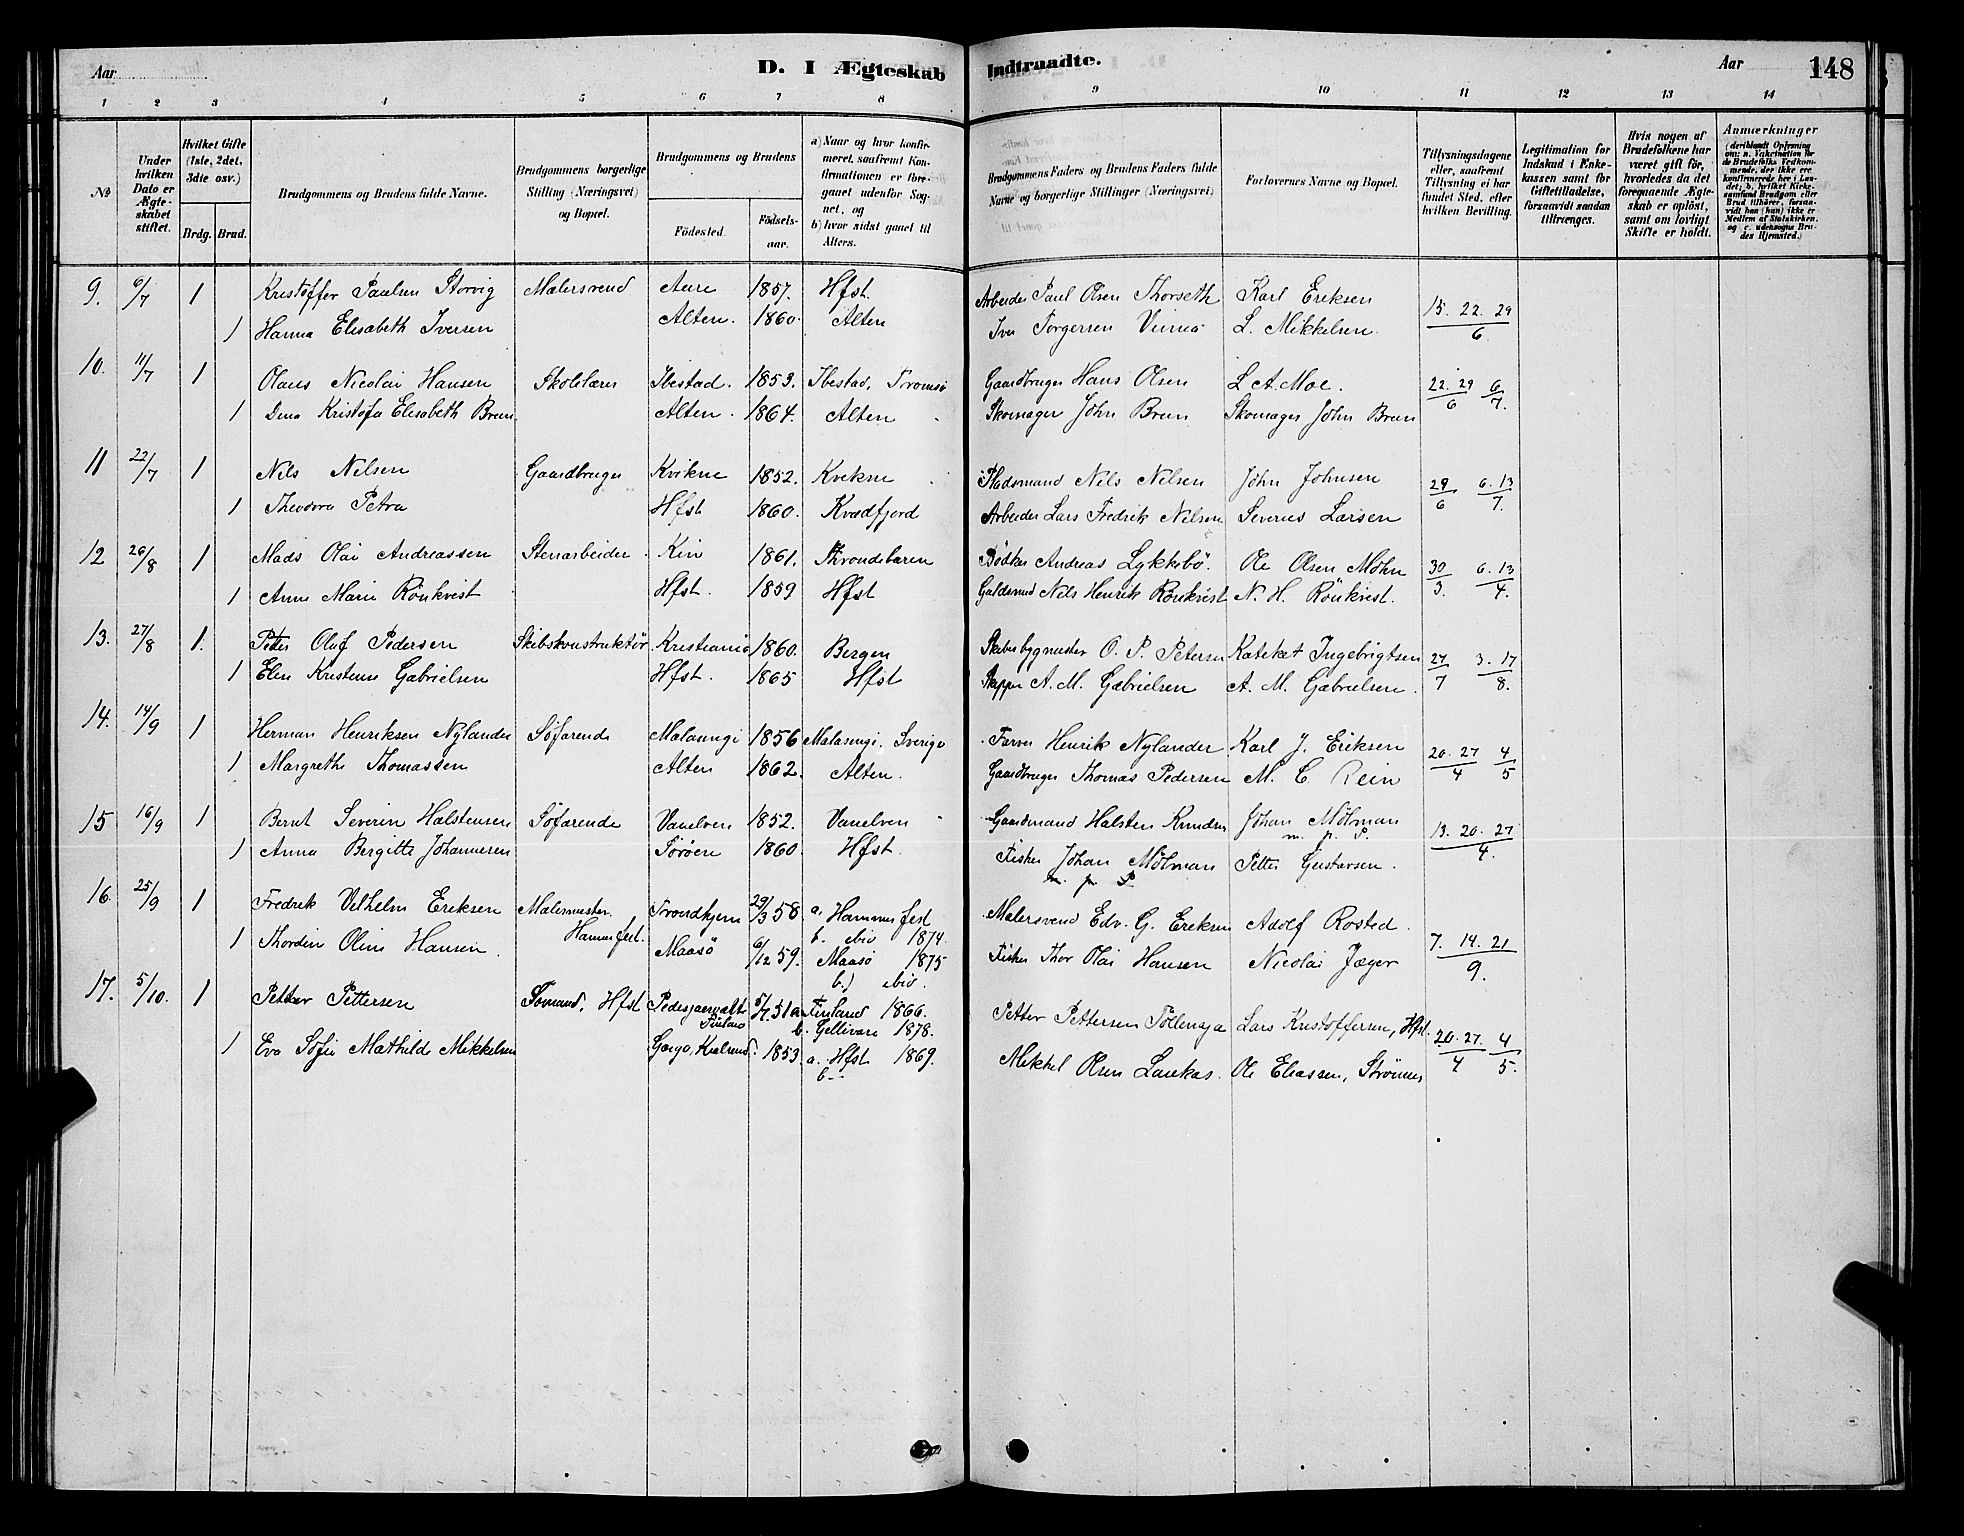 Aar
D. I Ægteskab Indtraadte.
Aar
148
1 2 3 4 5 6 7 8 9 10 11 12 13 14
No
Under hvilken Dato er Ægteskabet stiftet.
Hvilket Gifte (1ste, 2det, 3die osv.)
Brdg. Brud.
Brudgommens og Brudens fulde Navne.
Brudgommens borgerlige Stilling (Næringsvei) og Bopæl.
Brudgommens og Brudens
Födested.
Födselsaar.
a) Naar og hvor konfirmeret, saafremt Konfirmationen er foregaaet udenfor Sognet, og
b) hvor sidst gaaet til Alters.
Brudgommens Faders og Brudens Faders fulde Navne og borgerlige Stillinger (Næringsvei)
Forlovernes Navne og Bopæl.
Tillysningsdagene eller, saafremt Tillysning ei har fundet Sted, efter hvilken Bevilling.
Legitimation for Indskud i Enkekassen samt for Giftetilladelse, forsaavidt saadan tiltrænges.
Hvis nogen af Brudefolkene har været gift för, hvorledes da det foregaaende Ægteskab er oplöst, samt om lovligt Skifte er holdt.
Anmærkninger (deriblandt Oplysning om: a. Vakcination for de Brudefolks Vedkommende, der ikke ere konfirmerede her i Landet; b. hvilket Kirkesamfund Brudgom eller Brud tilhörer, forsaavidt han (hun) ikke er Medlem af Statskirken, og c. udensogns Brudes Hjemsted.)
9. 6/7 1 Kristoffer Paulsen Storvig Malersvend Aure 1857. Hfst. Arbeider Paul Olsen Thorseth Karl Eriksen 15. 22. 29
1 Hanna Elisabeth Iversen Alten. 1860. Alten Iver Torgersen L. Mikkelsen. 6
10. 11/7 1 Olaus Nicolai Hansen Skolelærer Ibestad. 1853. Ibestad, Tromsö Gaardbruger Hans Olsen L. A. Moe. 22. 29 6
1 Dina Kristofa Elisabeth Brun Alten. 1864. Alten Skomager John Brun Skomager John Brun 6 7.
11 22/7 1 Nils Nilsen Gaardbruger Kvikne 1852. Kvikne Pladsmand Nils Nilsen John Johnsen 29 6. 13
1 Theodora Petra Hfst 1860. Kvædfjord Arbeider Lars Fredrik Nilsen Severus Larsen 6 7.
12 26/8 1 Mads Olai Andreassen Stenarbeider Kin 1861. Throndebaren Bödker Andreas Lykkebö. Ole Olsen Mohn 30 6. 13
1 Anne Marie Rönkvist Hfst. 1859 Hfst Nils Henrik Rönkvist N. H. Rönkvist. 3. 4.
13. 27/8 1. Petter Olaf Pedersen Skibskonstruktör Kristiania 1860. Bergen Skibsbygmester O. P. Petersen Kateket Ingebrigtsen 27 3. 17
1 Elen Kristense Gabrielsen Hfst. 1865 Hfst Skipper A. M. Gabrielsen A. M. Gabrielsen. 7 8.
14. 14/9 1 Herman Henriksen Nylander Söfarende Malasengi 1856 Malasengi. Sverige Farver Henrik Nylander Karl J. Eriksen 20. 27 4
1 Margrethe Thomassen Alten 1862. Alten. Gaardbruger Thomas Pedersen M. C. Rein 4 5
15 16/9 1 Bernt Severin Halstensen Söfarende Vanelven 1852. Vanelven Gaardmand Halsten Knudsen Johan Mölman 13. 20. 27
m. p. P.
1 Anna Bergitte Johannesen Söröen 1860. Hfst. Fisker Johan Mölman Petter Gustavsen. 4.
m. p. P.
16. 25/9 1 Fredrik Vilhelm Eriksen Malermester. Trondhjem 29/3 58 a. Hammerfest Malersvend Edv. G. Eriksen Adolf Rosted.
Hammerfest. b. ibid 1874.
1 Thordin Oline Hansen Maasö 6/12 59. Maasö 1875 Fisker Thor Olai Hansen Nicolai Jæger 7. 14. 21
b.) ibid. 9.
17. 5/10. 1 Petter Pettersen Sömand, Hfst 51 a Finland 1866. Petter Pettersen Töllemaja Lars Kristoffersen, Hfst.
Finland b. Gellivare 1878.
1 Eva Sofie Mathilde Mikkelsen 1853. a. Hfst 1869. Mikkel Olsen Laukas. Ole Eliassen, Strömmen 20. 27. 4
b.- 4 5.